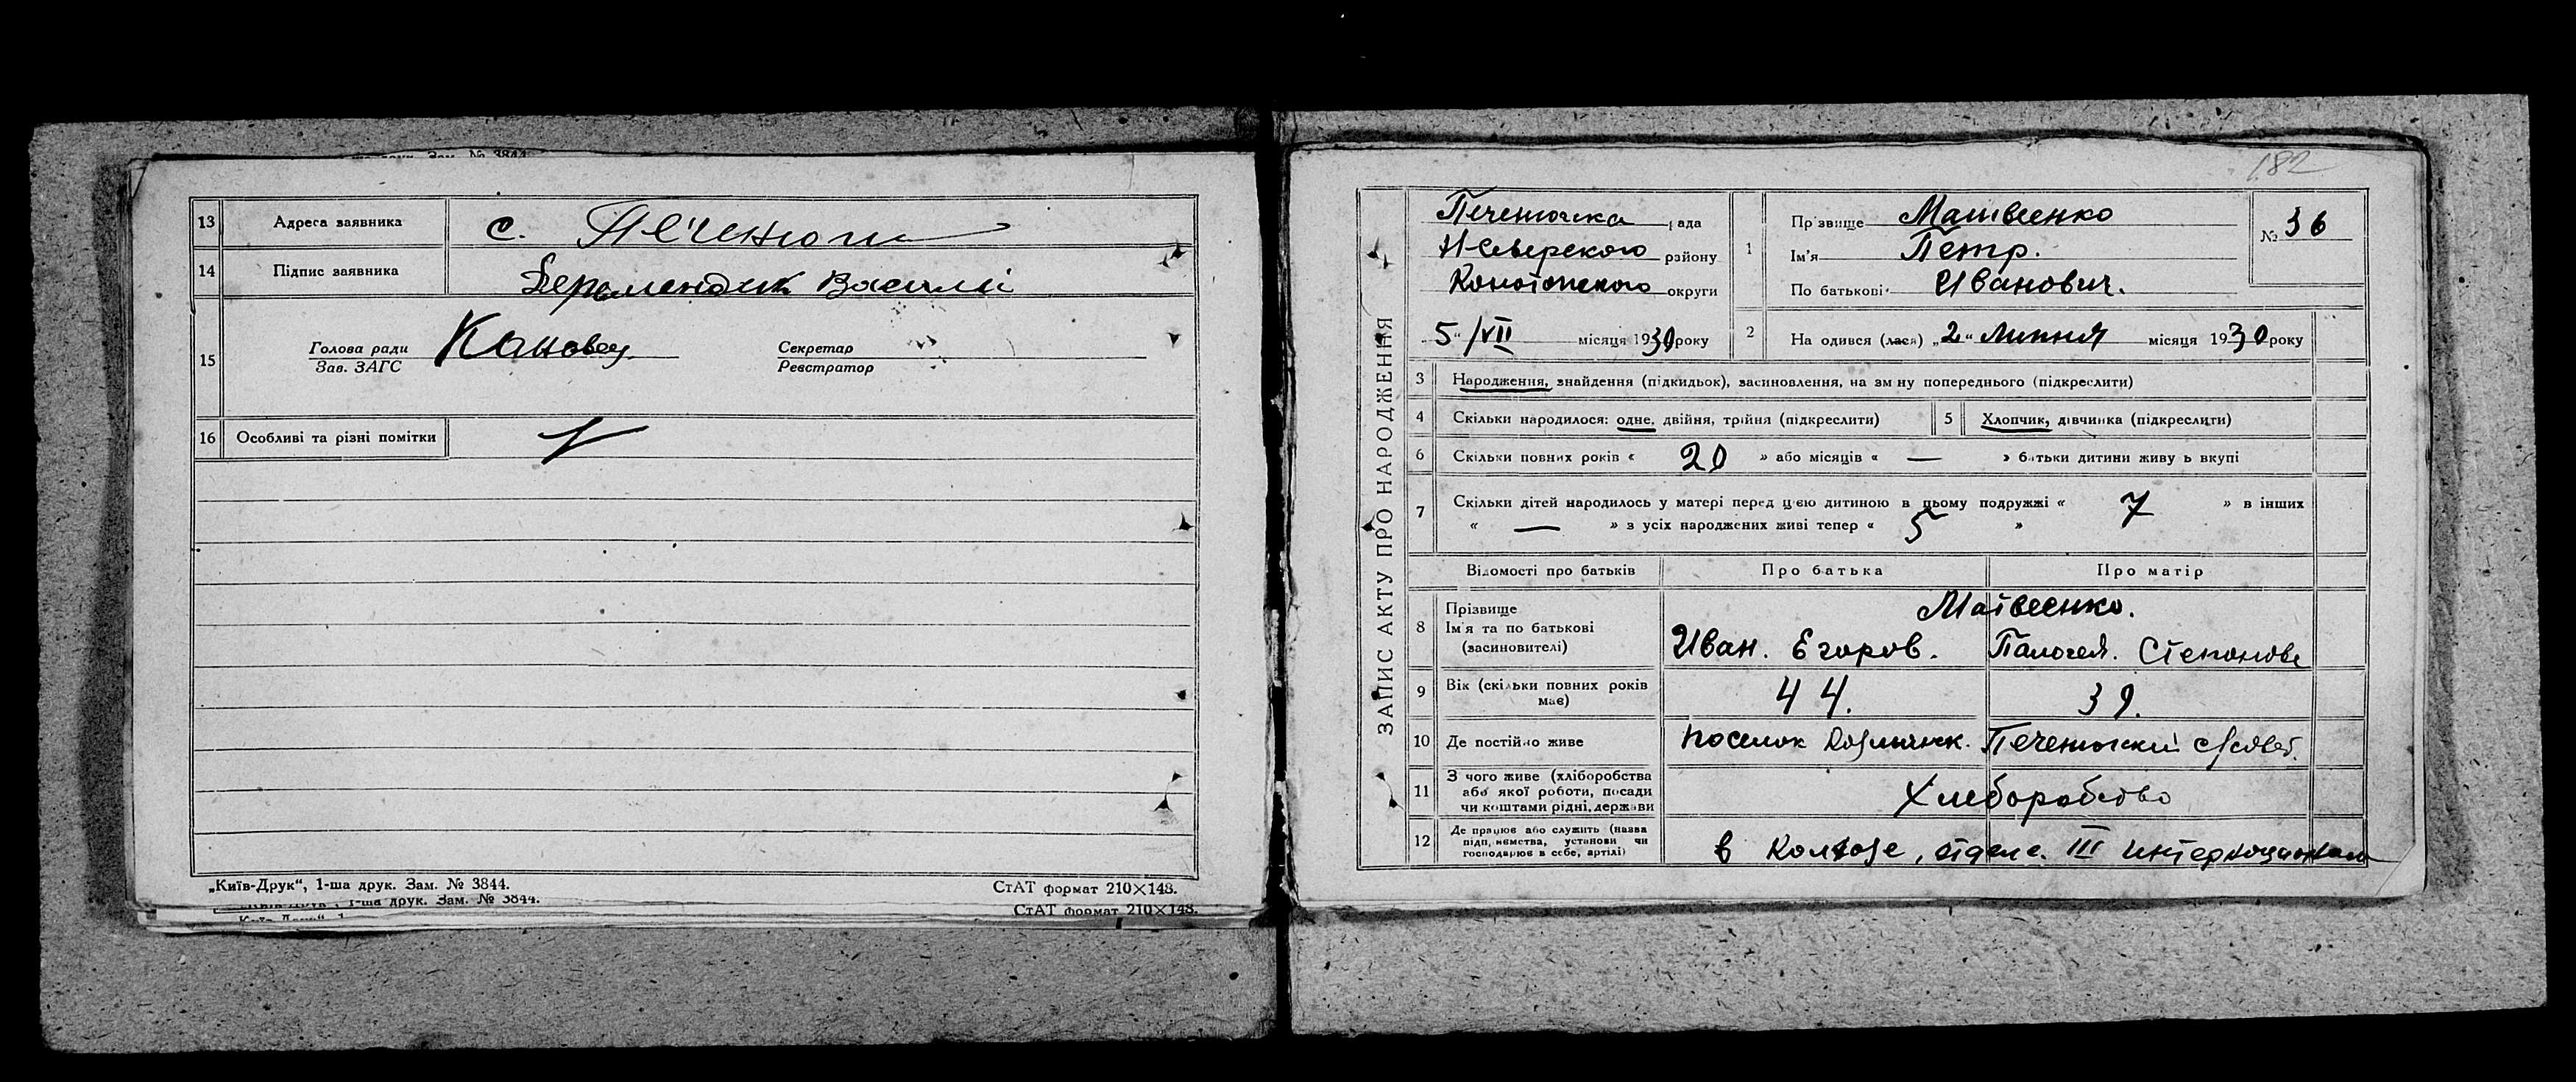 13 Адреса заявника с. Печенюги
14 Підпис заявника Василь
15 Голова ради
Зав. ЗАГС Секретар
Реєстратор
16 Особливі та різні помітки
„Київ-Друк“, 1-ша друк. Зам. № 3844. СтАТ формат 210×148.
1-ша друк. Зам. № 3844.
СтАТ формат 210×148.
182
ЗАПИС АКТУ ПРО НАРОДЖЕННЯ
Печенюгска рада
Н-Северского району
Конотопского округи
5 "/VII місяця 1930 року
1 Прізвище Матвеенко
Ім'я Петр.
По батькові Иванович.
№ 36
2 Народився (лася) „2“ Липня місяця 1930 року
3 Народження, знайдення (підкидьок), засиновлення, на зміну попереднього (підкреслити)
4 Скільки народилося: одне, двійня, трійня (підкреслити) 5 Хлопчик, дівчинка (підкреслити)
6 Скільки повних років « 20 » або місяців « — » батьки дитини живуть вкупі
7 Скільки дітей народилось у матері перед цією дитиною в цьому подружжі « 7 » в інших
« — » з усіх народжених живі тепер « 5 »
Відомості про батьків Про батька Про матір
8 Прізвище Матвеенко.
Ім'я та по батькові
(засиновителі) Иван. Егоров. Палагея. Степанова
9 Вік (скільки повних років
має) 44. 39.
10 Де постійно живе поселок Печенюгский с/совет.
11 З чого живе (хліборобства
або якої роботи, посади
чи коштами рідні, держави Хлеборобство
12 Де працює або служить (назва
підприємства, установи чи
господарює в себе, артілі) в Колхозе, отделе. III интернационала